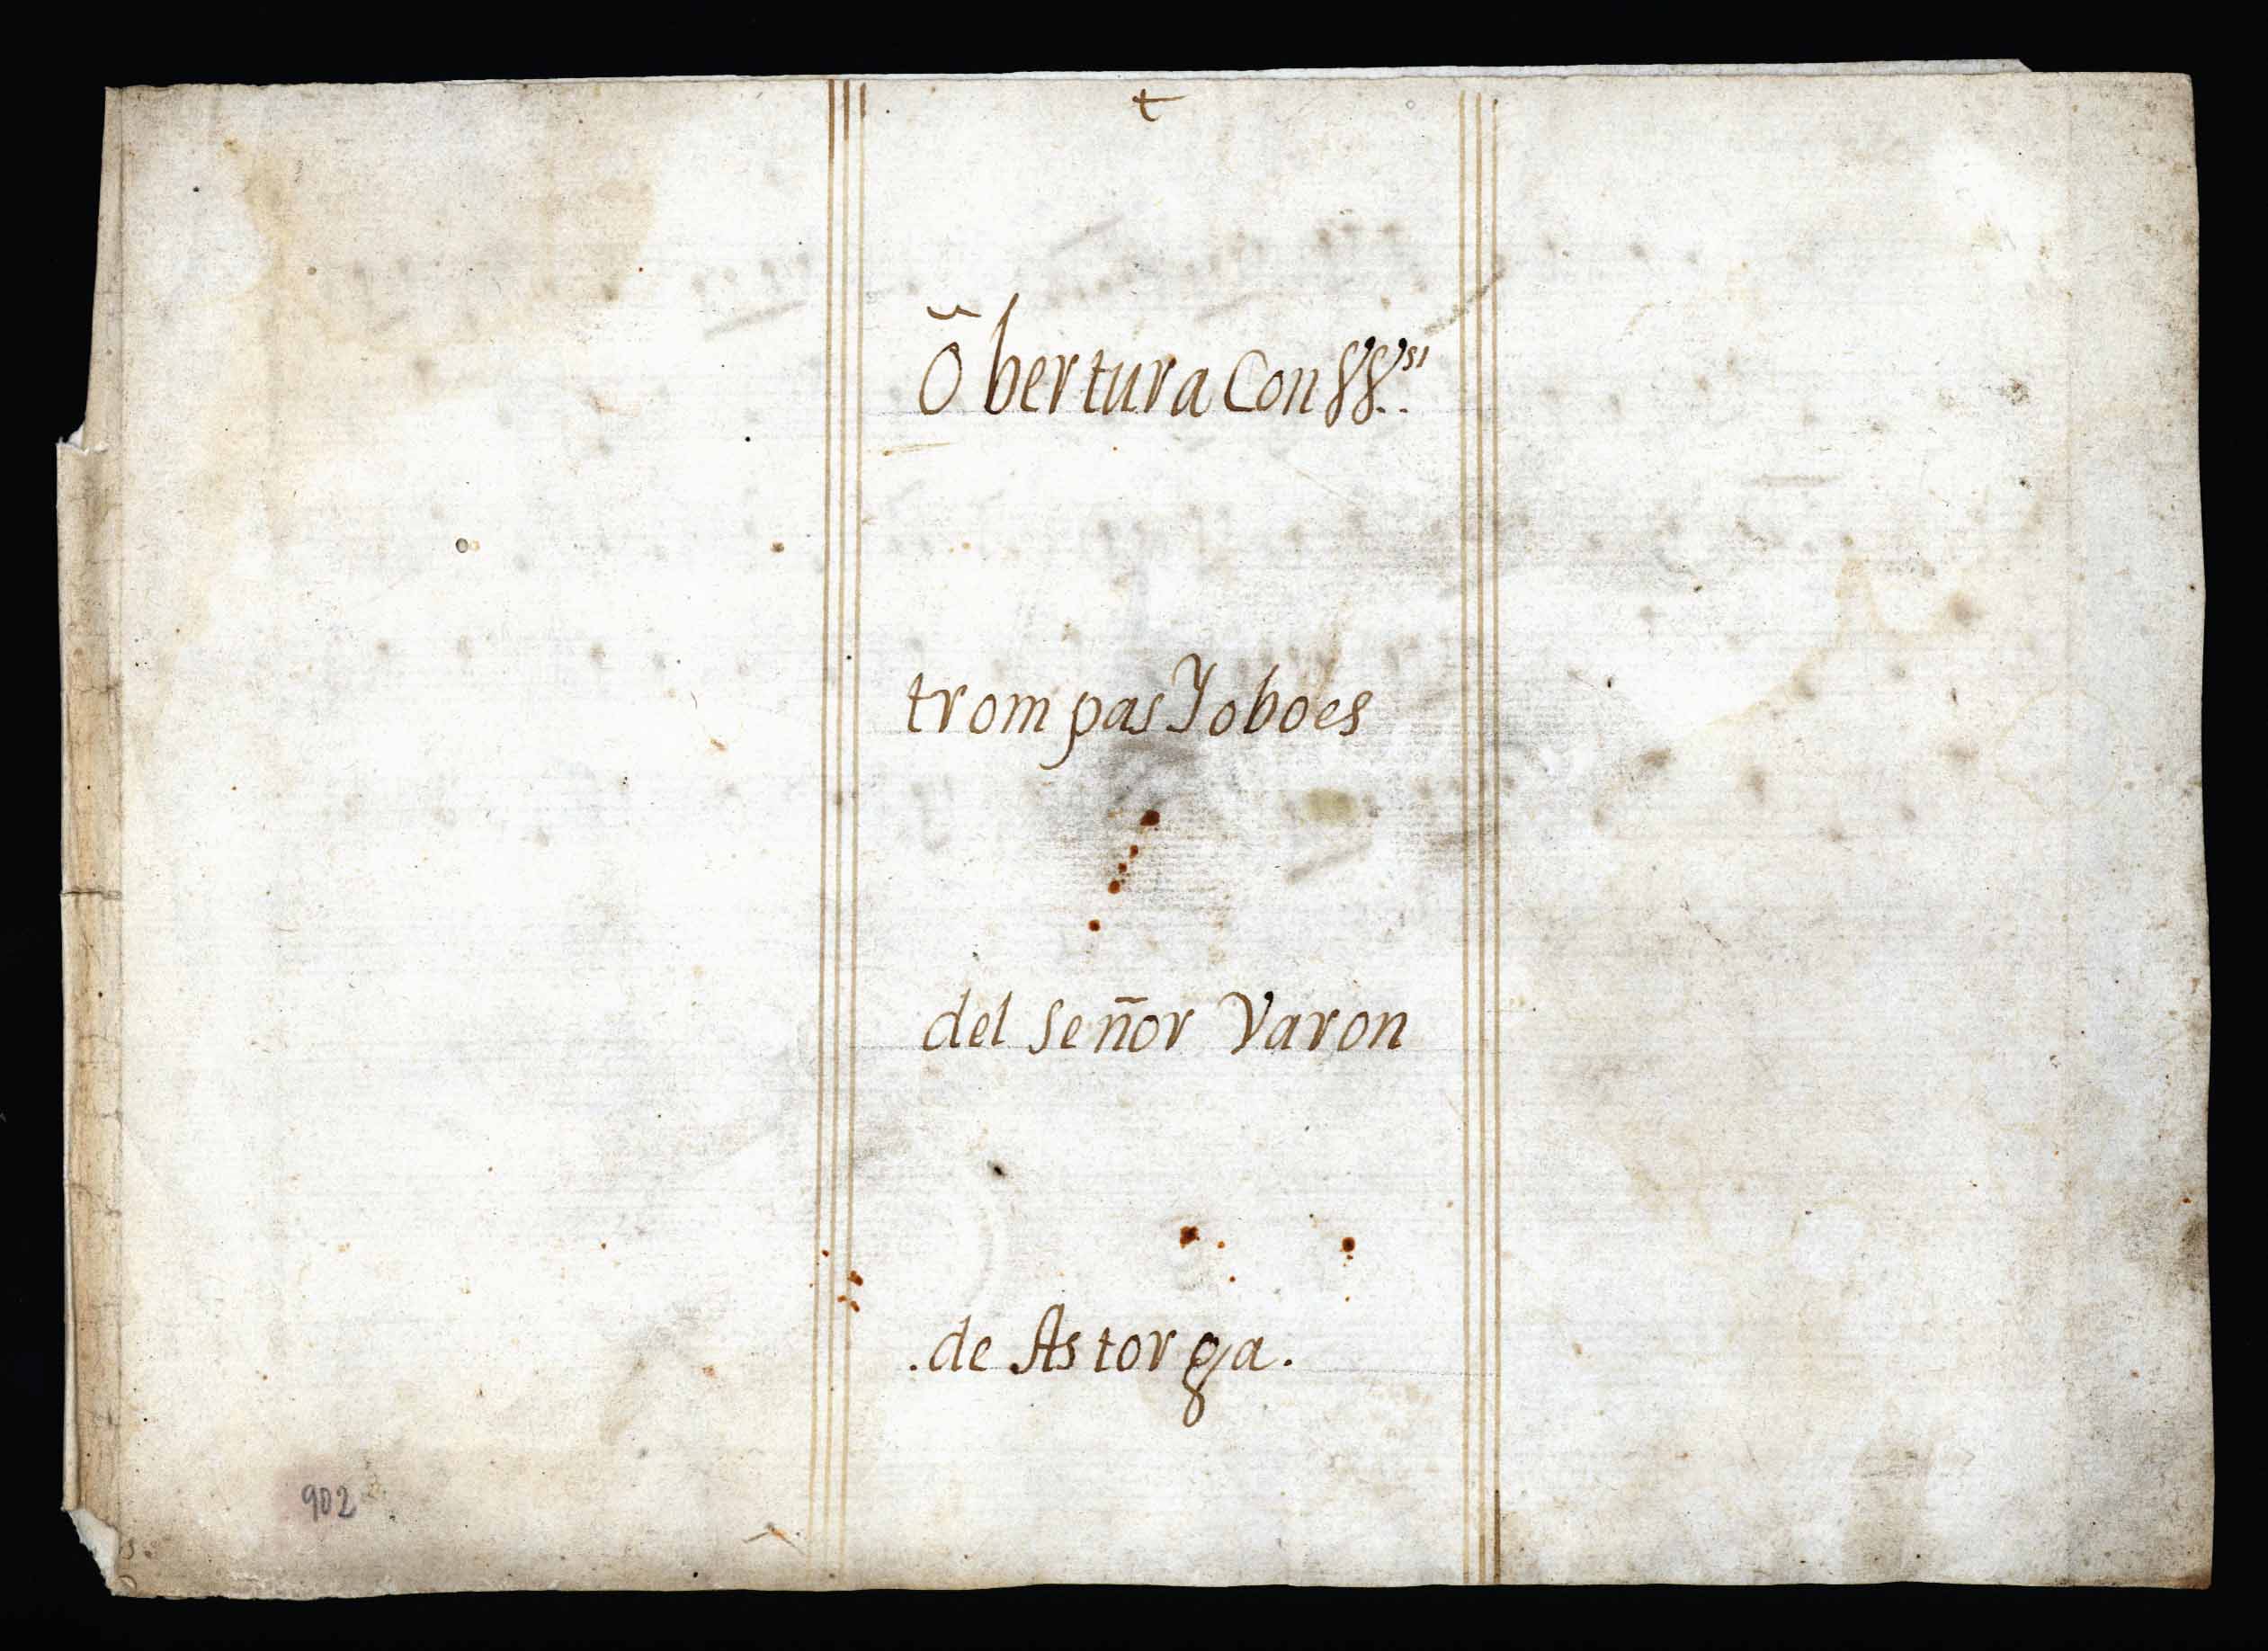 Õbertura Con VV.s
trompas Y oboes
del Señor Varon
.de Astorga.
902